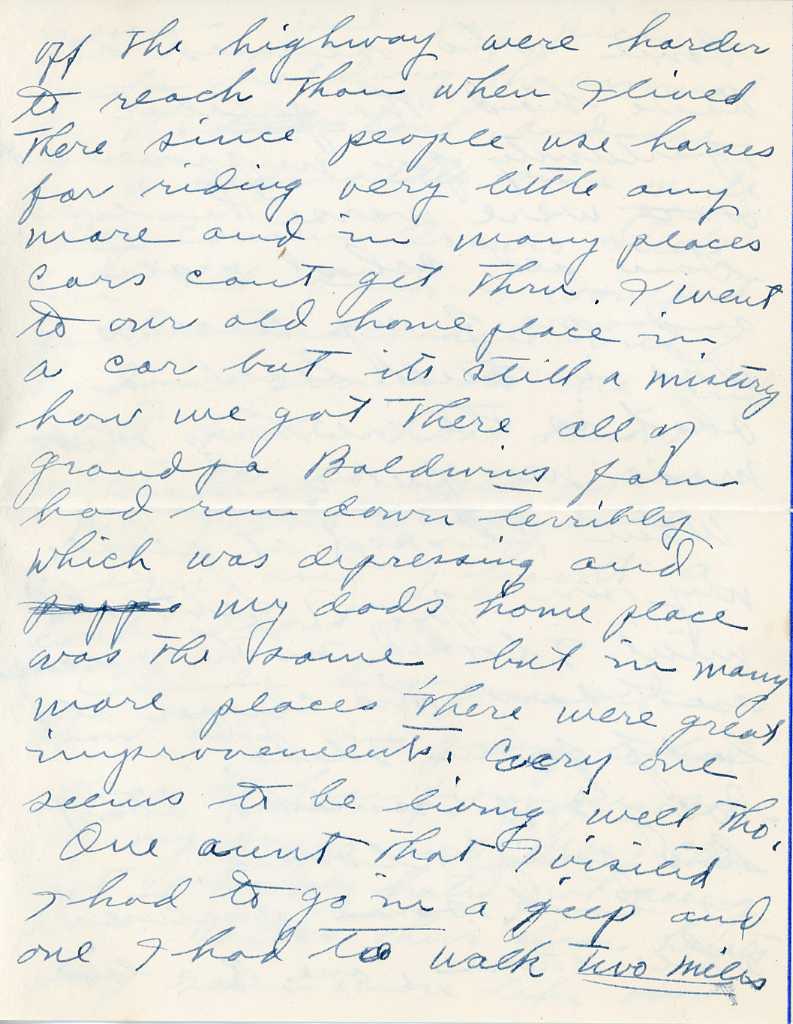 off the highway were harder
to reach than when I lived
there since people use horses
for riding very little any
more and in many places
cars cant get thru. I went
to our old home place in
a car but its still a mistery
how we got there all of
grandpa Baldwins farm
had run down terribly
which was depressing and
pappa my dads home place
was the same but in many
more places there were great
improvements. Every one
seems to be living well tho.
One aunt that I visited
I had to go in a jeep and
one I had to walk two miles